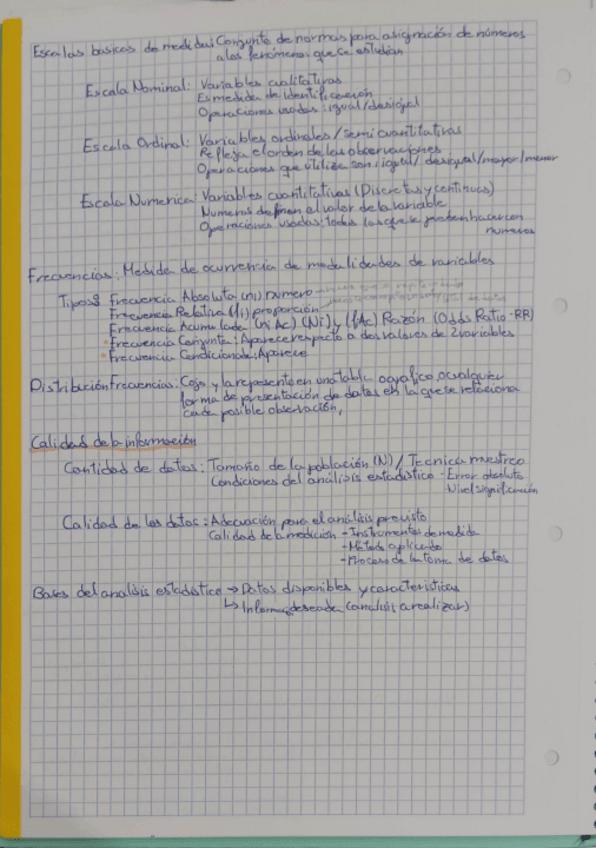 Escalas basicos de medidas: Conjunto de normas para asignación de números
a los fenómenos que se estudian
Escala Nominal: Variables cualitativas
Es medida de identificación
Operaciones usadas: igual/desigual
Escala Ordinal: Variables ordinales/semicuantitativas
Refleja el orden de las observaciones
Operaciones que utiliza son: igual/desigual/mayor/menor
Escala Numerica: Variables cuantitativas (Discretas y continuas)
Numeros definen el valor de la variable
Operaciones usadas: todas las que se pueden hacer con
numeros
Frecuencias: Medida de ocurrencia de modalidades de variables
Tipos: Frecuencia Absoluta (ni) numero
Frecuencia Relativa (fi) proporción
Frecuencia Acumulada (niAc) (Ni) y (fAc) Razón (Odds Ratio-RR)
Frecuencia Conjunta: Aparece respecto a dos valores de 2 variables
Frecuencia Condicionada: Aparece
Distribución Frecuencias: Cojo y la represento en una tabla o gráfico, o cualquier
forma de presentación de datos en la que se relaciona
cada posible observación,
Calidad de la información
Cantidad de datos: Tamaño de la población (N) / Tecnica muestreo
Condiciones del análisis estadístico - Error absoluto
- Nivel significación
Calidad de los datos: Adecuación para el análisis previsto
Calidad de la medición - Instrumentos de medida
- Método aplicado
- Proceso de la toma de datos
Bases del analisis estadistico → Datos disponibles y caracteristicas
↳ Informa. deseada (analisis a realizar)